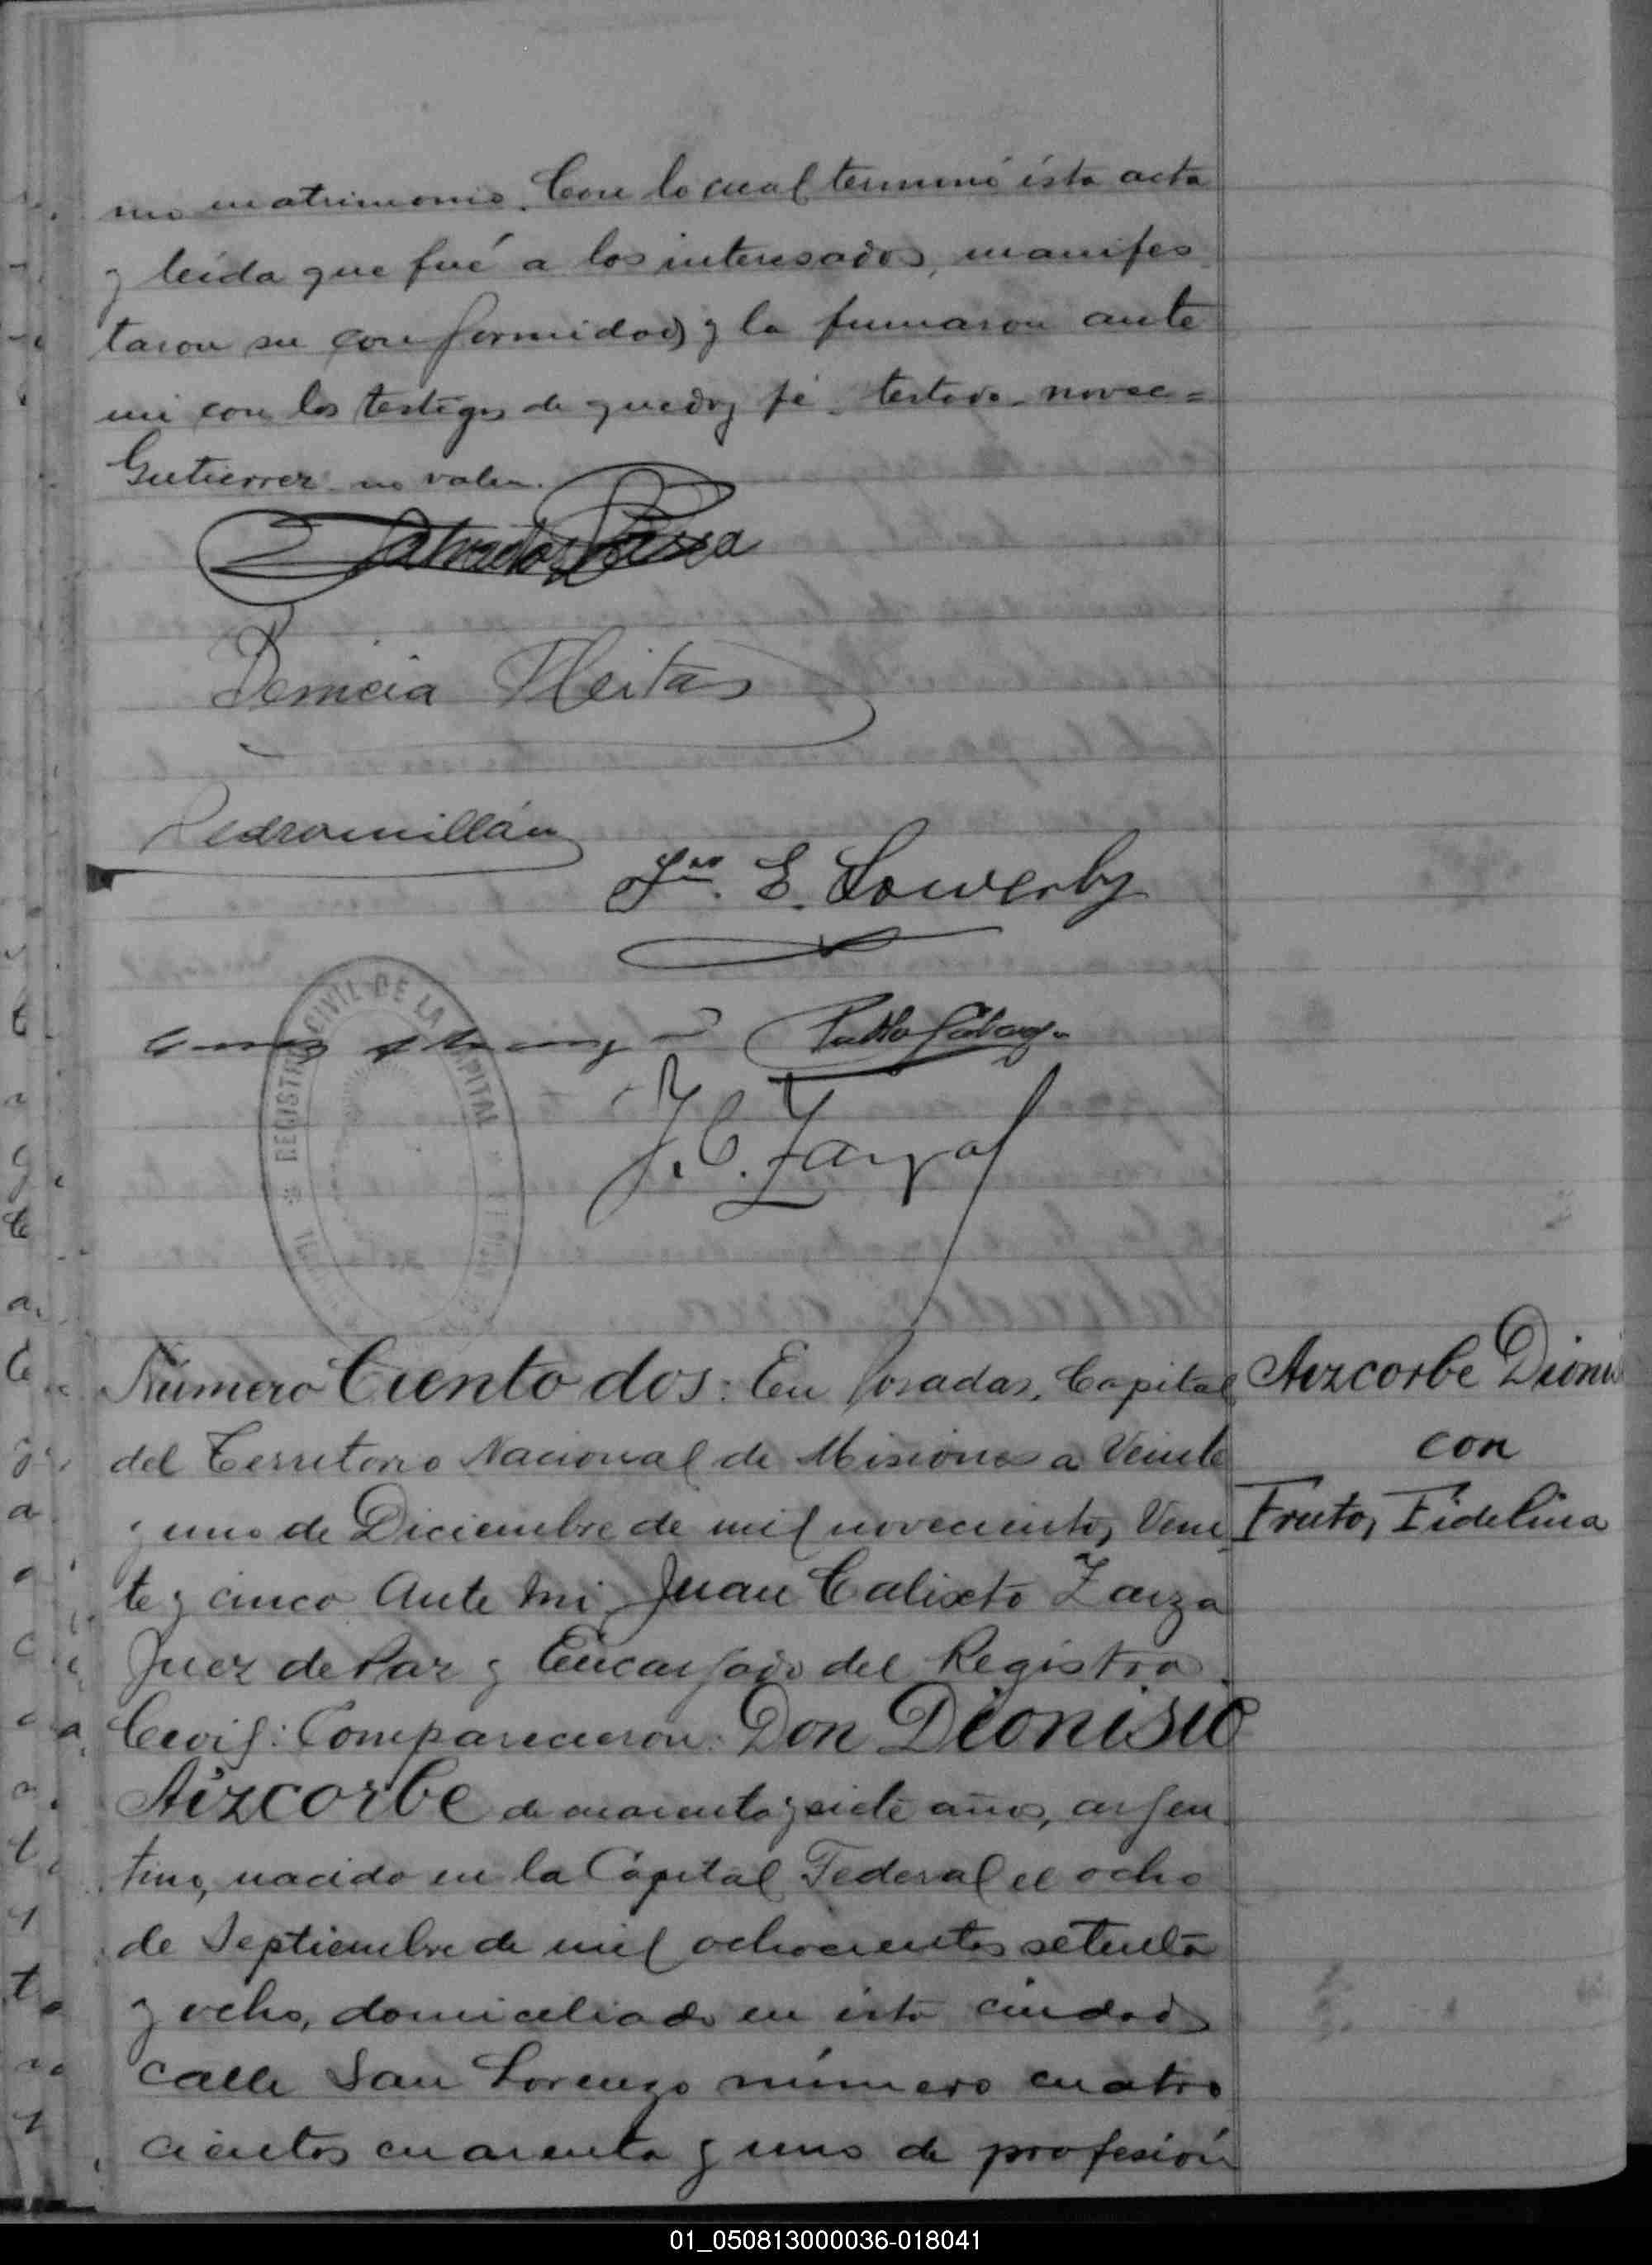 mo matrimonio. Con lo cual terminó ésta acta
y leída que fué a los interesados, manifes
taron su conformidad y la firmaron ante
mi con los testigos de que doy fé. testado - novec =
Gutierrez - no valen.
Salvador
Demicia Fleitas
Pedro Millán
Jno. E. Sowerby
Pablo
J. C. Zarza
REGISTRO CIVIL DE LA CAPITAL
Número Ciento dos: En Posadas, Capital
del Territorio Nacional de Misiones a Veinte
y uno de Diciembre de mil novecientos Vein
te y cinco Ante mi Juan Calixto Zarza
Juez de Paz y Encargado del Registro
Civil: Comparecieron: Don Dionisio
Aizcorbe de cuarenta y siete años, argen
tino, nacido en la Capital Federal el ocho
de Septiembre de mil ochocientos setenta
y ocho, domiciliado en ésta ciudad
calle San Lorenzo número cuatro
cientos cuarenta y uno de profesión
Aizcorbe Dioni
con
Frutos Fidelina
01_050813000036-018041